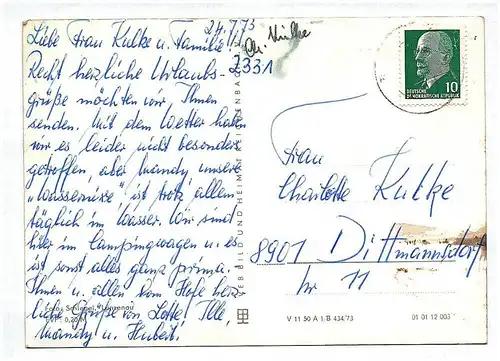 24.7.73
Liebe Frau Kulke u. Familie!
Ch. Kulke
2331
Recht herzliche Urlaubs-
grüße möchten wir Ihnen
senden. Mit dem Wetter haben
wir es leider nicht besonders
getroffen, aber Mandy unsere
"Wassernixe", ist trotz allem
täglich im Wasser. Wir sind
hier im Campingwagen u. es
ist sonst alles ganz prima.
Ihnen u. allen vom Hofe herz-
liche Grüße von Lotte,
Mandy u. Hubert.
VEB BILD UND HEIMAT REICHENBACH
10
DEUTSCHE
DEMOKRATISCHE REPUBLIK
Frau
Charlotte Kulke
8901 Dittmannsdorf
Nr 11
V 11 50 A 1/B 434/73
01 01 12 003